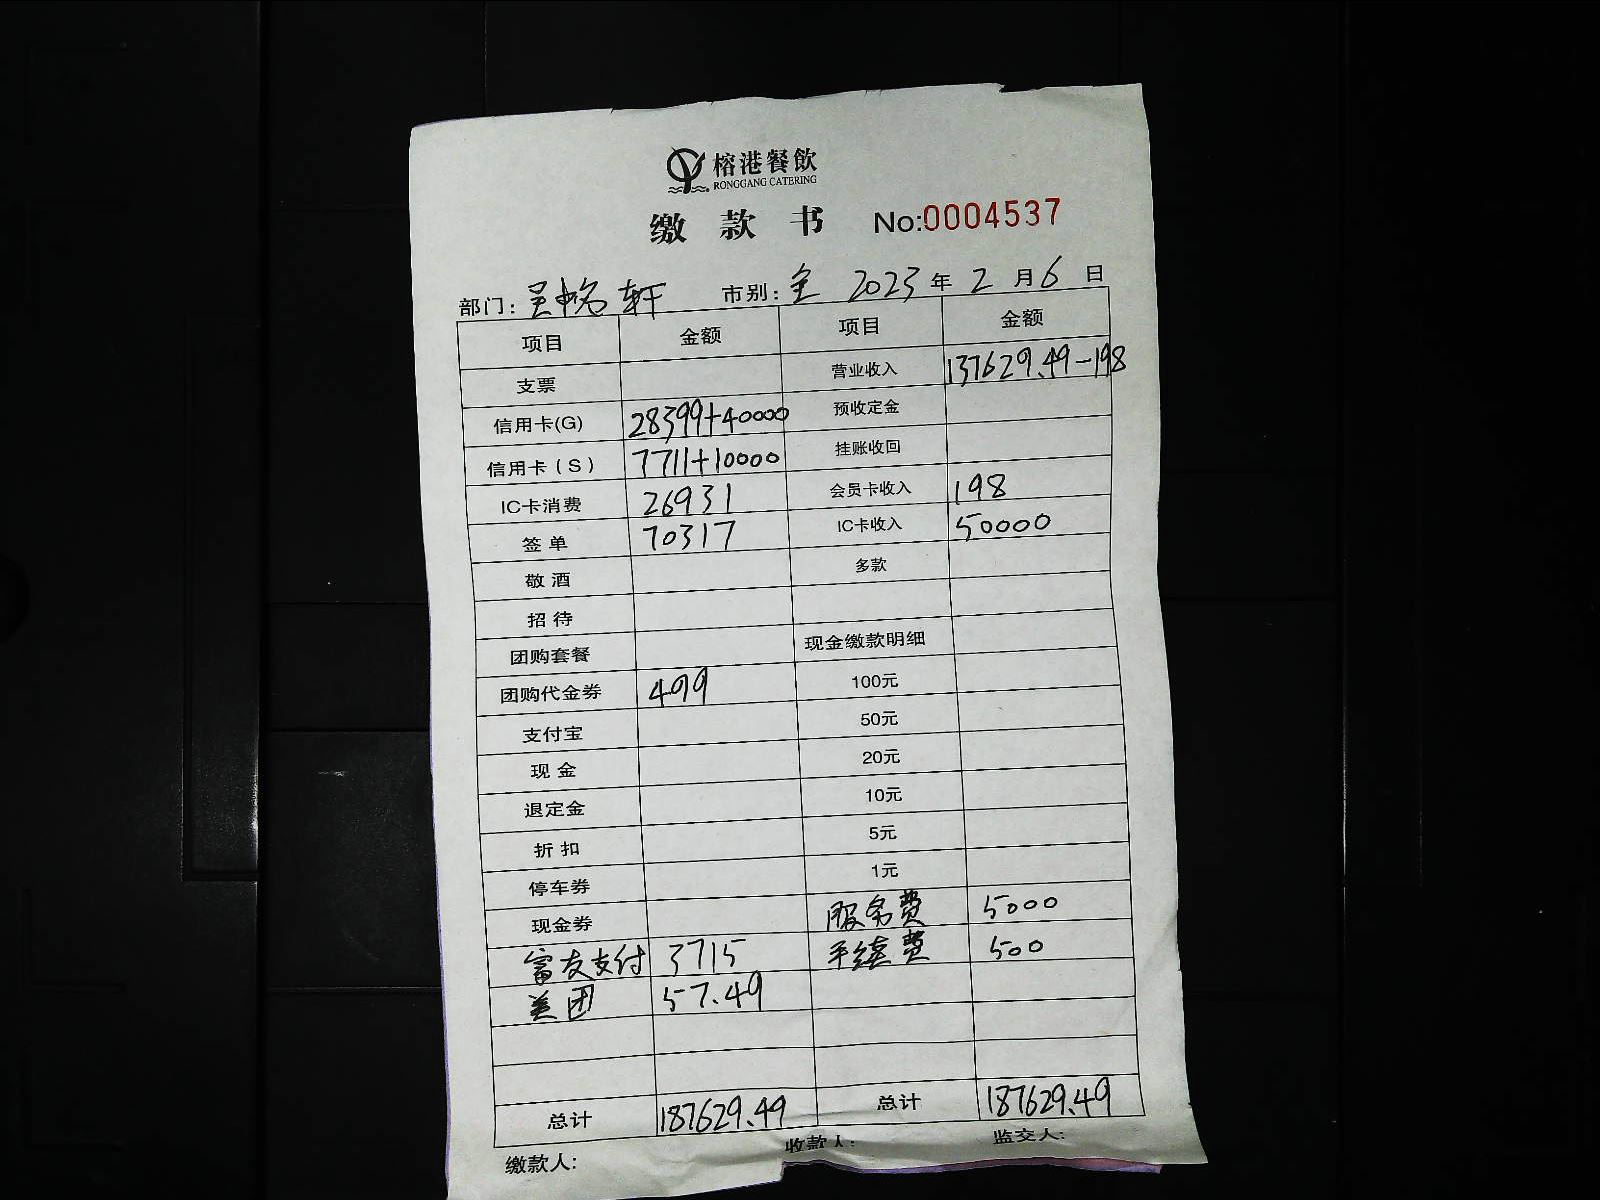 榕港餐飲
RONGGANG CATERING
缴款书 No:0004537
部门: 吴 轩 市别: 全 2023年2月6日
项目 金额 项目 金额
支票 营业收入 137629.49-198
信用卡(G) 28399+40000 预收定金
信用卡(S) 7711+10000 挂账收回
IC卡消费 26931 会员卡收入 198
签单 70317 IC卡收入 50000
敬酒 多款
招待
团购套餐 现金缴款明细
团购代金券 499 100元
支付宝 50元
现金 20元
退定金 10元
折扣 5元
停车券 1元
现金券 服务费 5000
富友支付 3715 手续费 500
美团 57.49
总计 187629.49 总计 187629.49
缴款人: 收款人: 监交人: